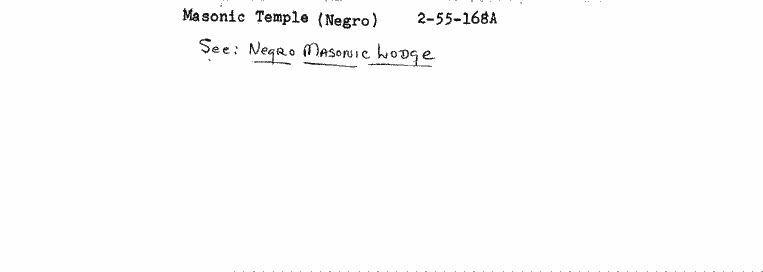 Masonic Temple (Negro) 2-55-168A
See: Negro Masonic Lodge